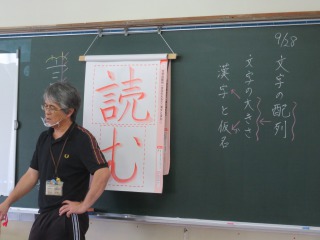 9/28
文字の配列
文字の大きさ
漢字と仮名
読む